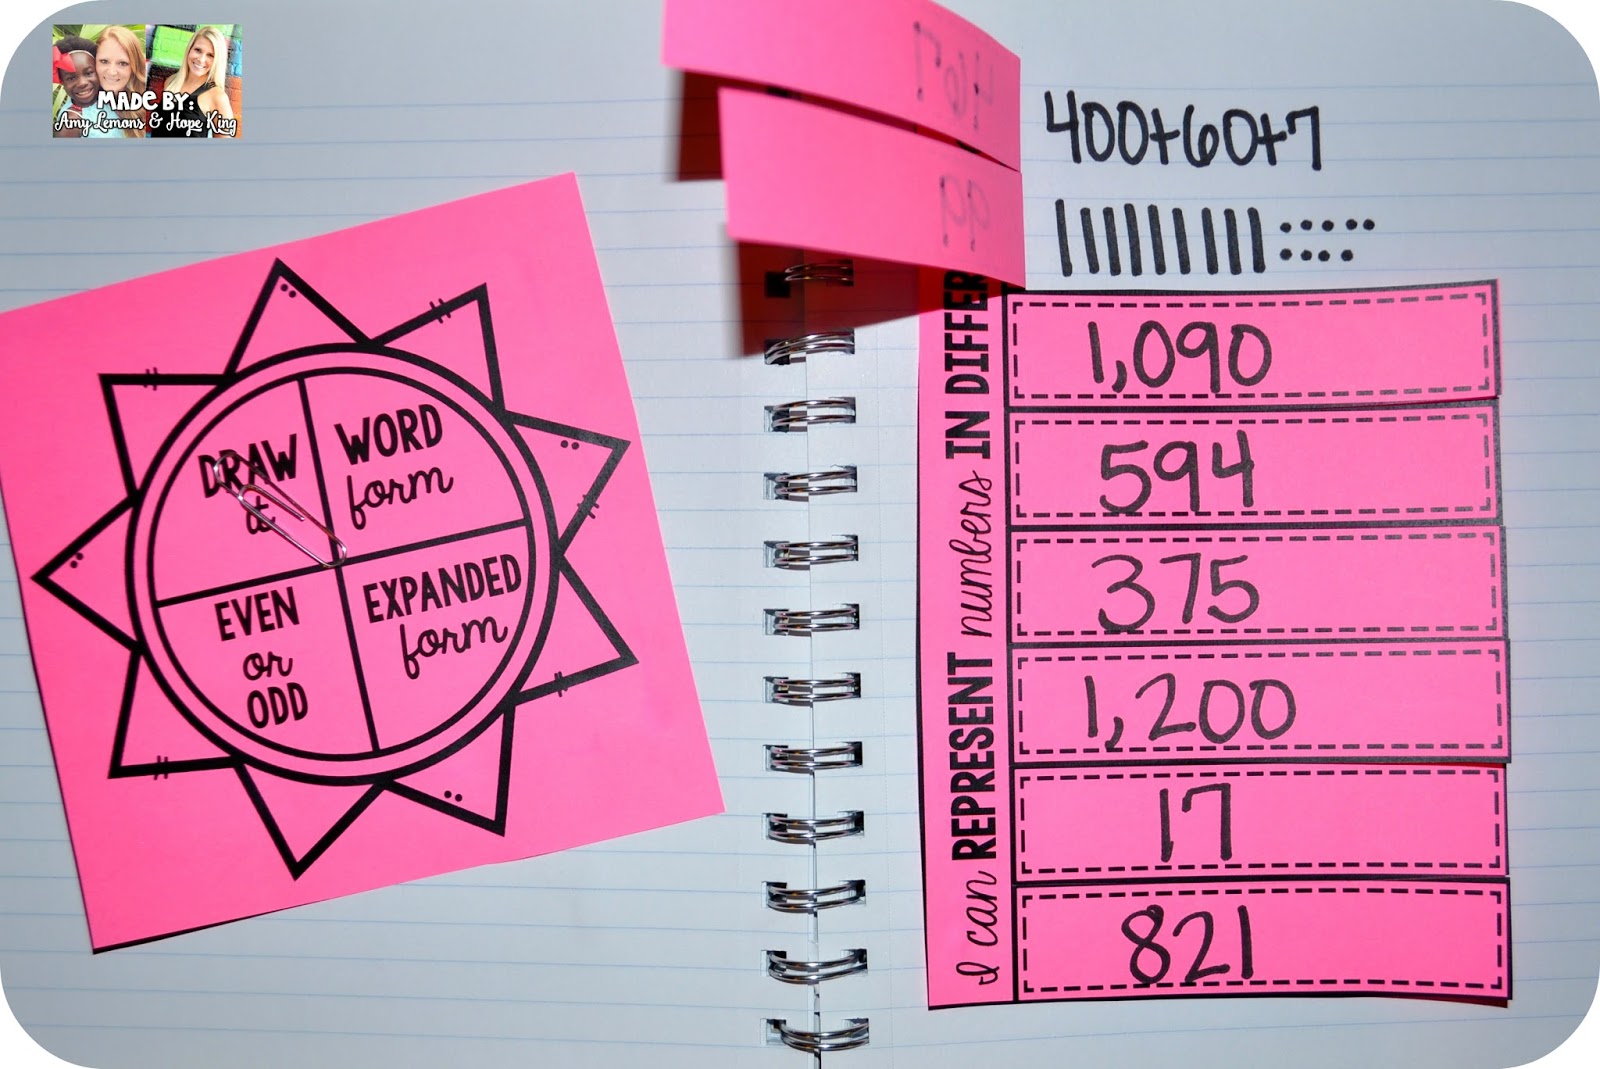 MADE BY:
Amy Lemons & Hope King
DRAW
it
WORD
form
EVEN
or
ODD
EXPANDED
form
467
99
400+60+7
I can REPRESENT numbers IN DIFFER
1,090
594
375
1,200
17
821